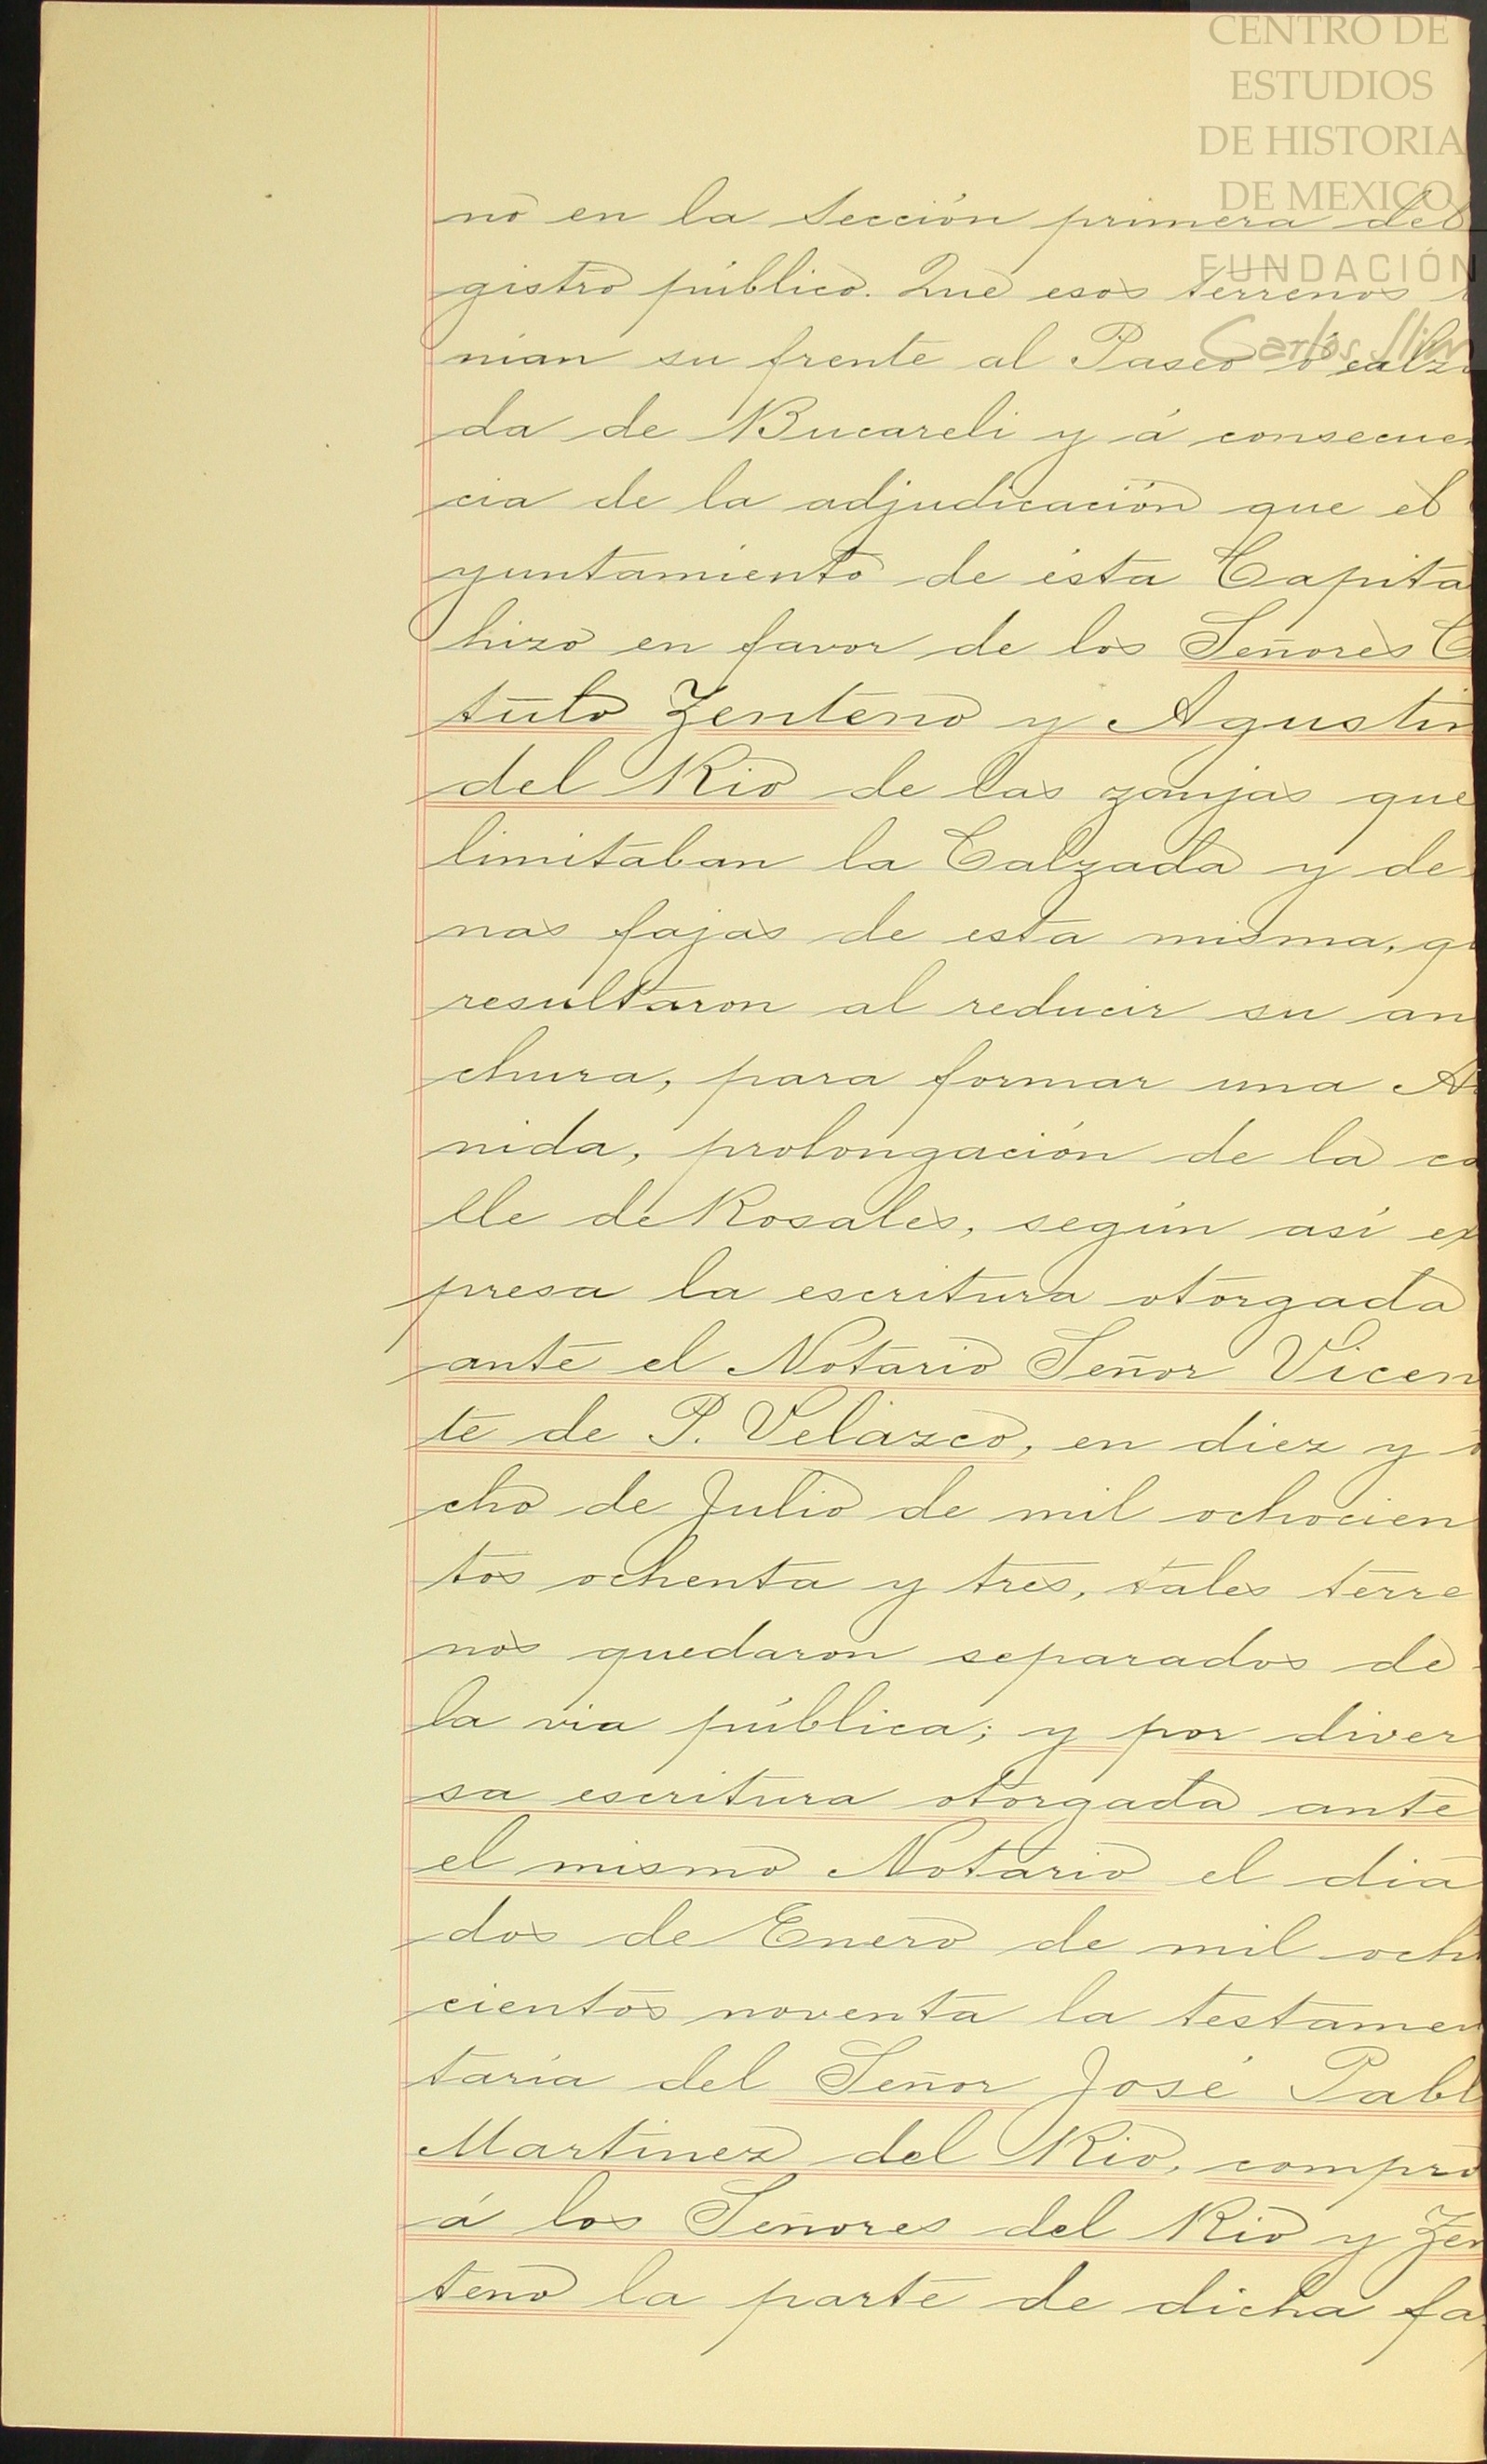 CENTRO DE
ESTUDIOS
DE HISTORIA
DE MEXICO
FUNDACIÓN
Carlos Slim
no en la Sección primera del
gistro público. Que esos terrenos
nian su frente al Paseo ó calz
da de Bucareli y á consecuen
cia de la adjudicación que el
yuntamiento de ésta Capita
hizo en favor de los Señores C
tulo Zenteno y Agustin
del Rio de las zanjas que
limitaban la Calzada y de
nas fajas de esta misma, qu
resultaron al reducir su an
chura, para formar una A
nida, prolongación de la ca
lle de Rosales, según así ex
presa la escritura otorgada
ante el Notario Señor Vicen
te de P. Velázco, en diez y o
cho de Julio de mil ochocien
tos ochenta y tres, tales terre
nos quedaron separados de
la via pública; y por diver
sa escritura otorgada ante
el mismo Notario el dia
dos de Enero de mil ocho
cientos noventa la testamen
taria del Señor José Pabl
Martinez del Rio, compró
á los Señores del Rio y Zen
teno la parte de dicha fa